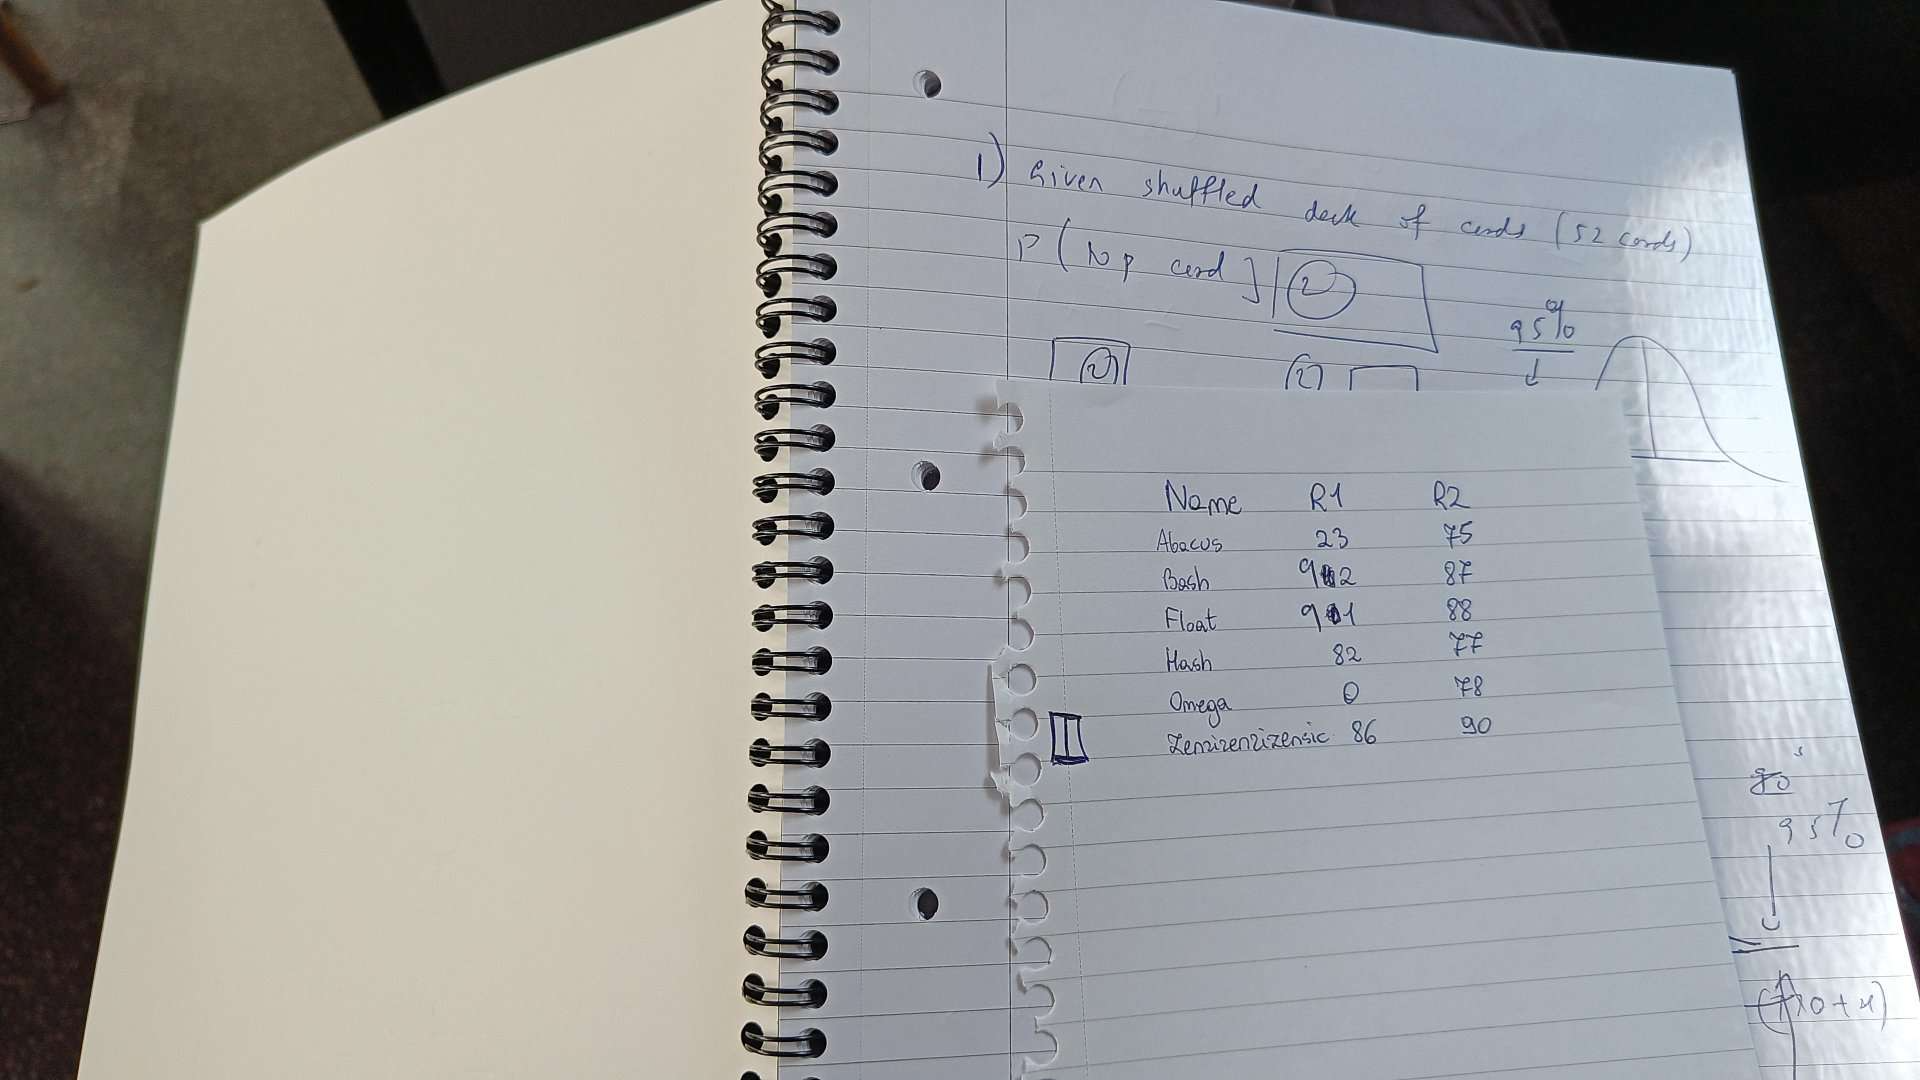 1) Given shuffled deck of cards (52 cards)
P ( top card ] 2
95%
2 2
Name R1 R2
Abacus 23 75
Bash 92 87
Float 91 88
Hash 82 77
Omega 0 78
Zenzizenzizensic 86 90
95%